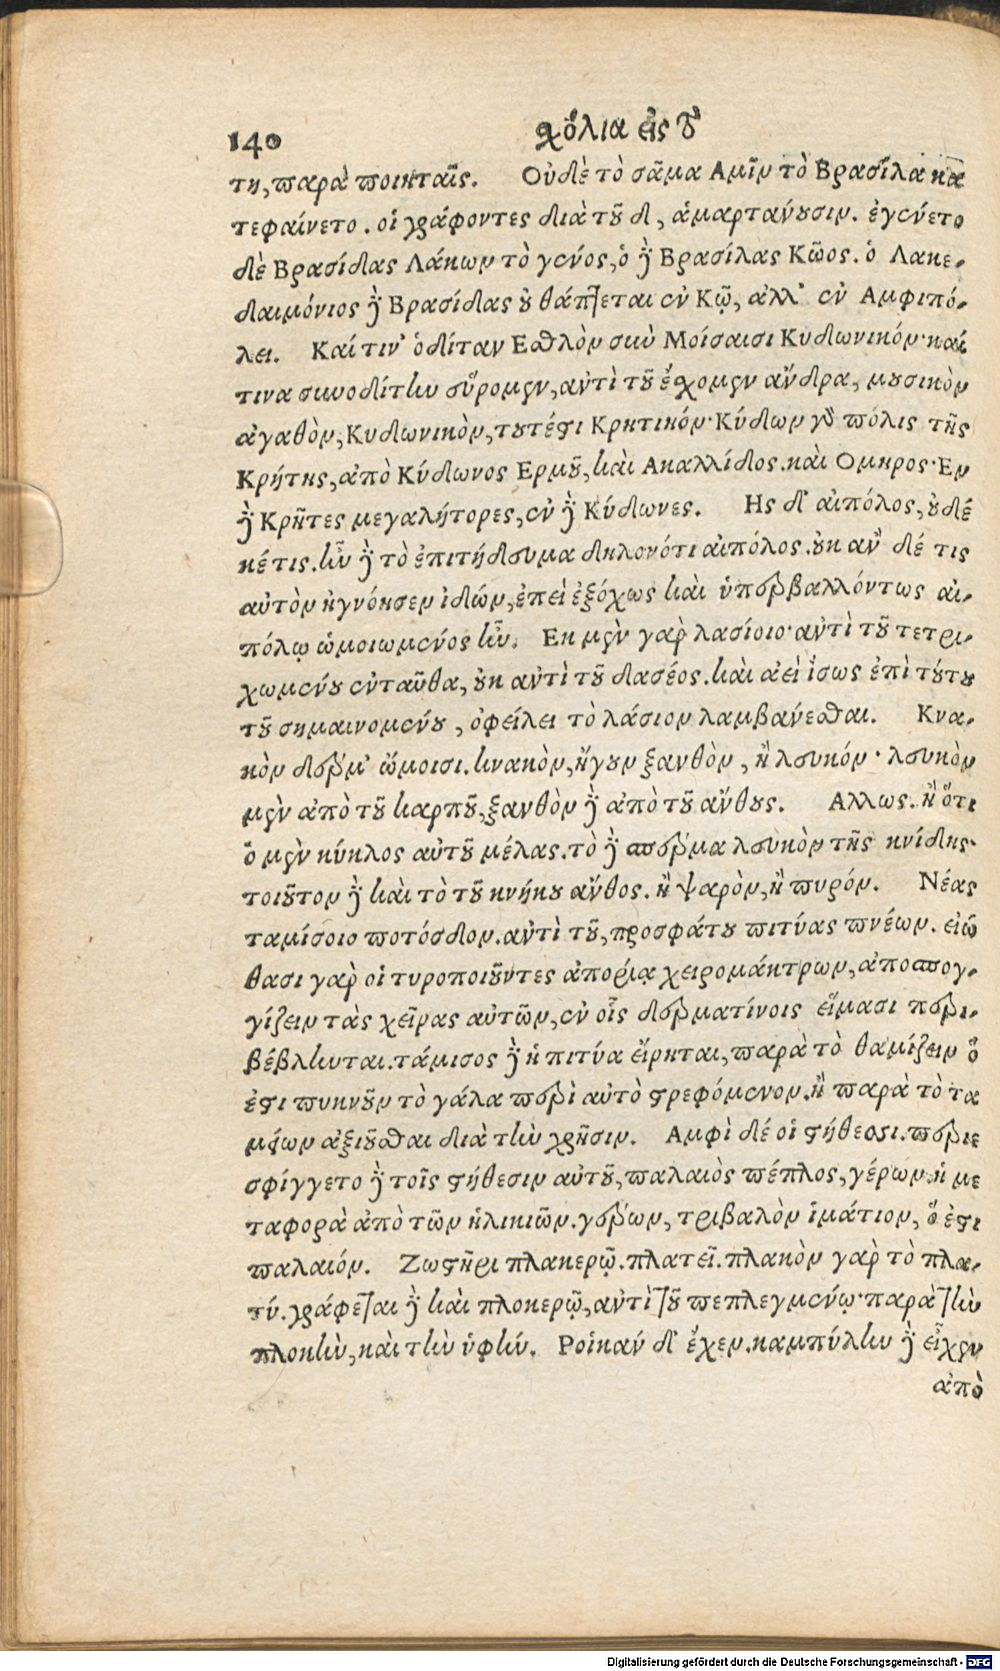 140 σχόλια εἰς τὸ
τη, παρὰ ποιηταῖς. Οὐδὲ τὸ σᾶμα Αμῖν τὸ Βρασίλα κα
τεφαίνετο. οἱ γράφοντες διὰ τοῦ δ, ἁμαρτάνουσιν. ἐγένετο
δὲ Βρασίδας Λάκων τὸ γένος, ὁ δὲ Βρασίλας Κῶος. ὁ Λακε-
δαιμόνιος δὲ Βρασίδας οὐ θάπτεται ἐν Κῷ, ἀλλ' ἐν Αμφιπό-
λει. Καί τιν' ὁδίταν Εσθλὸν σὺν Μοίσαισι Κυδωνικόν· καί
τινα συνοδίτην σύρομεν, ἀντὶ τοῦ ἔσχομεν ἄνδρα, μουσικὸν
ἀγαθὸν, Κυδωνικὸν, τουτέστι Κρητικόν· Κύδων γὰρ πόλις τῆς
Κρήτης, ἀπὸ Κύδωνος Ερμοῦ, καὶ Ακαλλίδος. καὶ Ομηρος· Εν
δὲ Κρῆτες μεγαλήτορες, ἐν δὲ Κύδωνες. Ης δ' αἰπόλος, οὐδέ
κέ τις. ἦν δὲ τὸ ἐπιτήδευμα δηλονότι αἰπόλος. οὐκ ἂν δέ τις
αὐτὸν ἠγνόησεν ἰδών, ἐπεὶ ἐξόχως καὶ ὑπερβαλλόντως αἰ-
πόλῳ ὡμοιωμένος ἦν. Εκ μὲν γὰρ λασίοιο· ἀντὶ τοῦ τετρι-
χωμένου ἐνταῦθα, οὐκ ἀντὶ τοῦ δασέος. καὶ ἀεὶ ἴσως ἐπὶ τούτου
τοῦ σημαινομένου, ὀφείλει τὸ λάσιον λαμβάνεσθαι. Κνα-
κὸν δέρμ' ὤμοισι. κνακὸν, ἤγουν ξανθὸν, ἢ λευκόν· λευκὸν
μὲν ἀπὸ τοῦ καρποῦ, ξανθὸν δὲ ἀπὸ τοῦ ἄνθους. Αλλως. ἢ ὅτι
ὁ μὲν κύκλος αὐτοῦ μέλας. τὸ δὲ σπέρμα λευκὸν τῆς κνίδης·
τοιοῦτον δὲ καὶ τὸ τοῦ κνήκου ἄνθος. ἢ ψαρὸν, ἢ πυρόν. Νέας
ταμίσοιο ποτόσδον. ἀντὶ τοῦ, προσφάτου πιτύας πνέων. εἰώ
θασι γὰρ οἱ τυροποιοῦντες ἀπορίᾳ χειρομάκτρων, ἀποσπογ-
γίζειν τὰς χεῖρας αὐτῶν, ἐν οἷς δερματίνοις εἵμασι περι-
βέβληνται. τάμισος δὲ ἡ πιτύα εἴρηται, παρὰ τὸ θαμίζειν ὅ
ἐστι πυκνοῦν τὸ γάλα περὶ αὐτὸ στρεφόμενον. ἢ παρὰ τὸ τα
μέων ἀξιοῦσθαι διὰ τὴν χρῆσιν. Αμφὶ δέ οἱ στήθεσσι. περιε
σφίγγετο δὲ τοῖς στήθεσιν αὐτοῦ, παλαιὸς πέπλος, γέρων. ἡ με
ταφορὰ ἀπὸ τῶν ἡλικιῶν. γέρων, τριβαλὸν ἱμάτιον, ὅ ἐστι
παλαιόν. Ζωστῆρι πλακερῷ. πλατεῖ. πλακὸν γὰρ τὸ πλα-
τύ. γράφεται δὲ καὶ πλοκερῷ, ἀντὶ τοῦ πεπλεγμένῳ· παρὰ τὴν
πλοκὴν, καὶ τὴν ὑφήν. Ροικάν δ' ἔχεν. καμπύλην δὲ εἶχεν
ἀπὸ
Digitalisierung gefördert durch die Deutsche Forschungsgemeinschaft - DFG